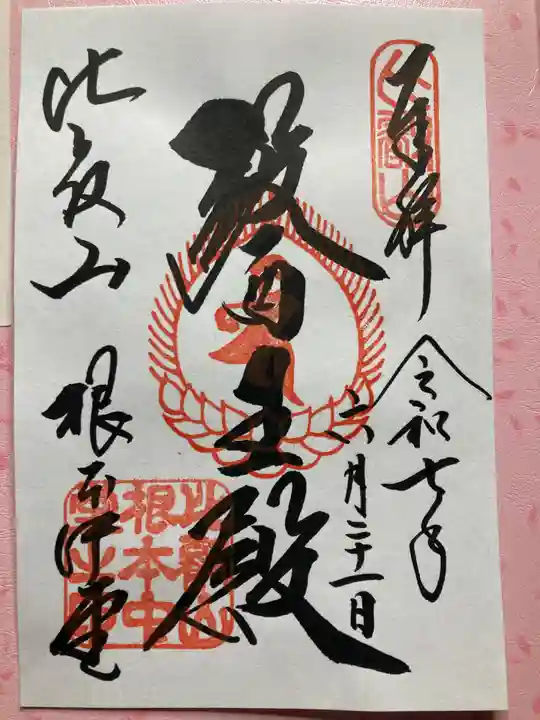 奉拝
令和七年
六月二十一日
醫王殿
比叡山
根本中堂
比叡山
根本中
堂之印